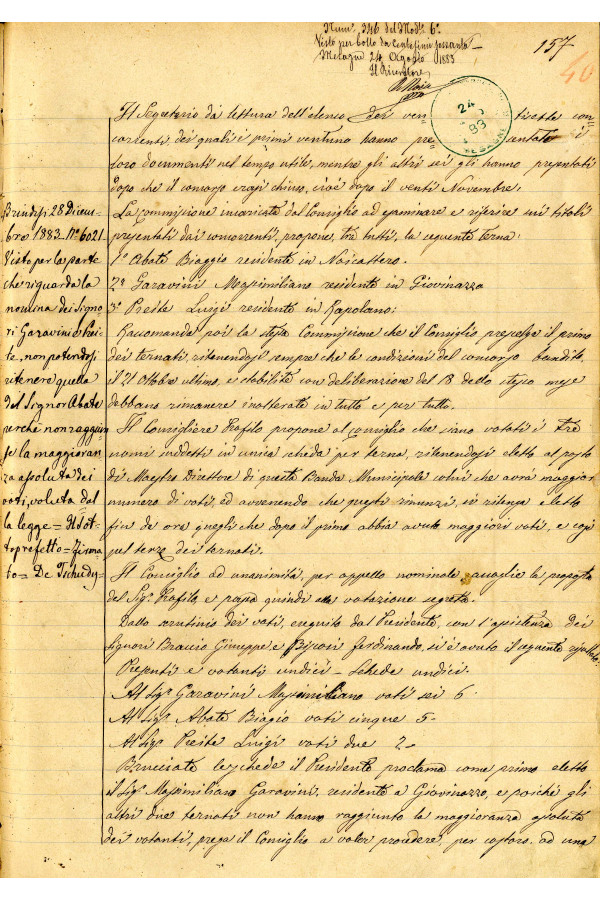 Num.° 346 del Mod.° 6°
Visto per bollo da Centesimi sessanta
Mesagne 24 Agosto 1883
Il Ricevitore
157
40
24
83
MESAGNE
Il Segretario dà lettura dell'elenco dei ventisette con=
correnti, dei quali i primi ventuno hanno presentato i
loro documenti nel tempo utile, mentre gli altri sei gli hanno presentati
dopo che il concorso erasi chiuso, cioè dopo il venti Novembre;
La commissione incaricata dal Consiglio ad esaminare e riferire sui titoli
presentati dai concorrenti, propone, tra tutti, la seguente terna:
1° Abate Biaggio residente in Noicattero.
2° Garavini Massimiliano residente in Giovinazzo
3° Preite Luigi residente in Rapolano;
Raccomanda poi la stessa Commissione che il Consiglio prescelga il primo
dei ternati, ritenendosi sempre che le condizioni del concorso bandito
il 21 Ottobre ultimo, e stabilite con deliberazione del 18 dello stesso mese
debbano rimanere inalterate in tutto e per tutto.
Il Consigliere Profilo propone al consiglio che siano votati i tre
nomi suddetti in unica scheda per terna, ritenendosi eletto al posto
di Maestro Direttore di questa Banda Municipale colui che avrà maggior
numero di voti, ed avvenendo che questi rinunzi, si ritenga eletto
fin da ora quegli che dopo il primo abbia avuto maggiori voti, e così
pel terzo dei ternati.
Il Consiglio ad unanimità, per appello nominale accoglie la proposta
del Sig.r Profilo, e passa quindi alla votazione segreta.
Dallo scrutinio dei voti, eseguito dal Presidente, con l'assistenza dei
signori Braccio Giuseppe e Ferdinando, si è avuto il seguente risultato:
Presenti e votanti undici - schede undici.
Al Sig.r Garavini Massimiliano voti sei 6.
Al Sig.r Abate Biagio voti cinque 5-
Al Sig.r Preite Luigi voti due 2-
Bruciate le schede il Presidente proclama come primo eletto
il Sig.r Massimiliano Garavini, residente a Giovinazzo, e poiché gli
altri due ternati non hanno raggiunto la maggioranza assoluta
dei votanti, prega il Consiglio a voler procedere, per costoro, ad una
Brindisi, 28 Dicem=
bre 1883. N° 6021
Visto per la parte
che riguarda la
nomina dei Signo
ri Garavini e Prei=
te, non potendosi
ritenere quella
del Signor Abate
perché non raggiun
se la maggioran
za assoluta dei
voti, voluta dal
la legge = Il Sot=
toprefetto = Firma
to = De Tschudy =